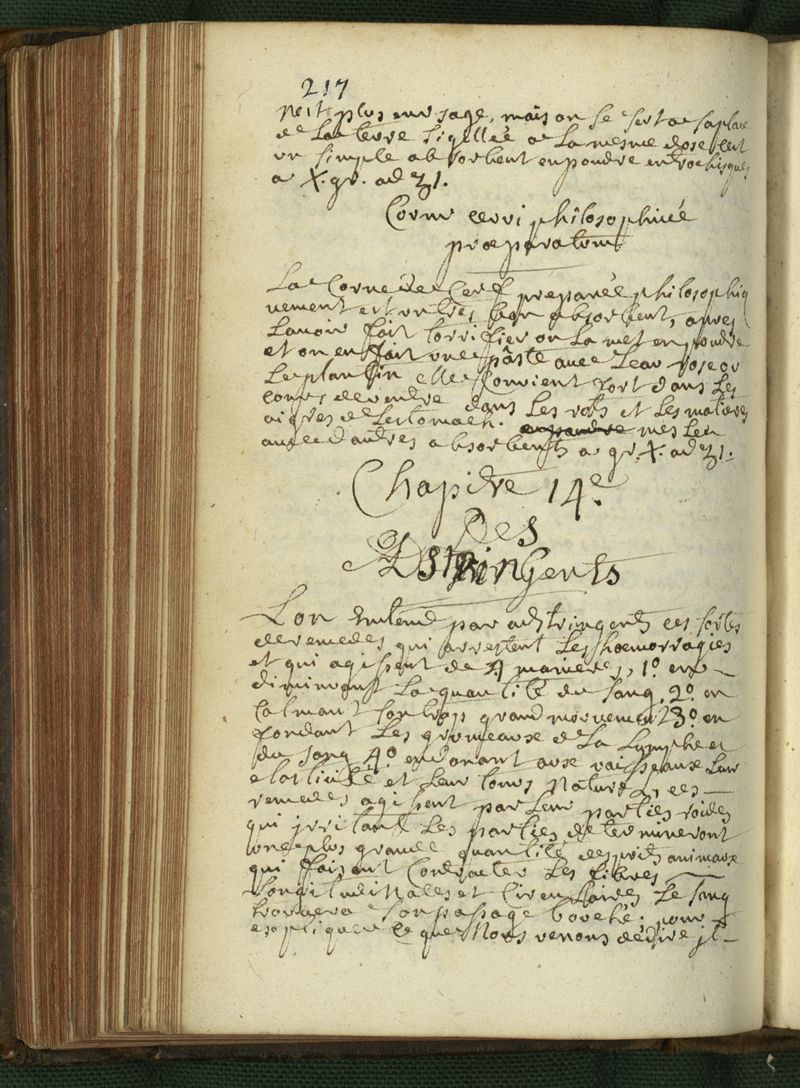 217
n'est plus en usage, mais on se sert de sa place
de La terre sigillée a La mesme dose c'est
un simple absorbent en poudre en trochisques
a X. gr. ad ʒ1.
Cornu cervi philosophicé
præparatum
La Corne de Cerf preparée philosophiq
uement est un tres bon absorbent, apres
Lavoir fait torrifier on La met en poudre
et on en fait une pâste avec Leau rose ou
Le plantin elle Convient fort dans Les
cours de ventre dans Les rots et Les matieres
aigres de Lestomach. meslée
avec d'autres absorbents a gr. X. ad ʒ1.
Chapitre 14e
Des
Astringents
Lon entend par astringents ces sortes
de remedes qui arrestent Les hœmorragies
et qui agissent de 4 manieres, 1º en
diminuant La quantité du sang, 2º en
Calmant son trop grand mouvement 3º en
fondant Les grumeaux de La Lymphe et
du sang 4º en donant aux vaisseaux Leur
elasticité et Leur tons naturel, ces
remedes agissent par Leur parties roides
qui irritant Les parties determineront
une plus grande quantité desprits animaux
qui faisant Contracter Les fibres
Longitudinales et Circulaires Le sang
trouvera son passage bouché; pour
expliquer ce que Nous venons de dire il